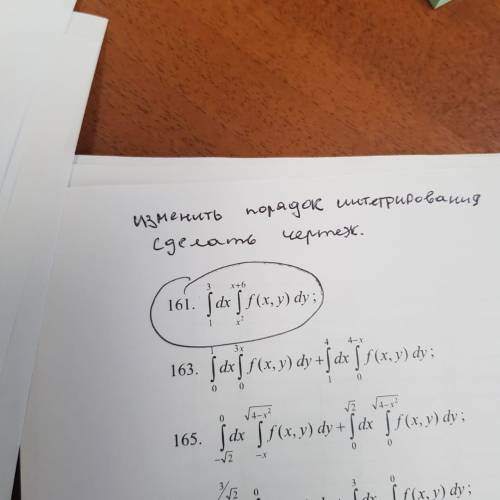 изменить порядок интегрирования
сделать чертеж.
161. \int_{1}^{3} dx \int_{x^2}^{x+6} f(x, y) dy;
163. \int_{0}^{1} dx \int_{0}^{3x} f(x, y) dy + \int_{1}^{4} dx \int_{0}^{4-x} f(x, y) dy;
165. \int_{-\sqrt{2}}^{0} dx \int_{-x}^{\sqrt{4-x^2}} f(x, y) dy + \int_{0}^{\sqrt{2}} dx \int_{0}^{\sqrt{4-x^2}} f(x, y) dy;